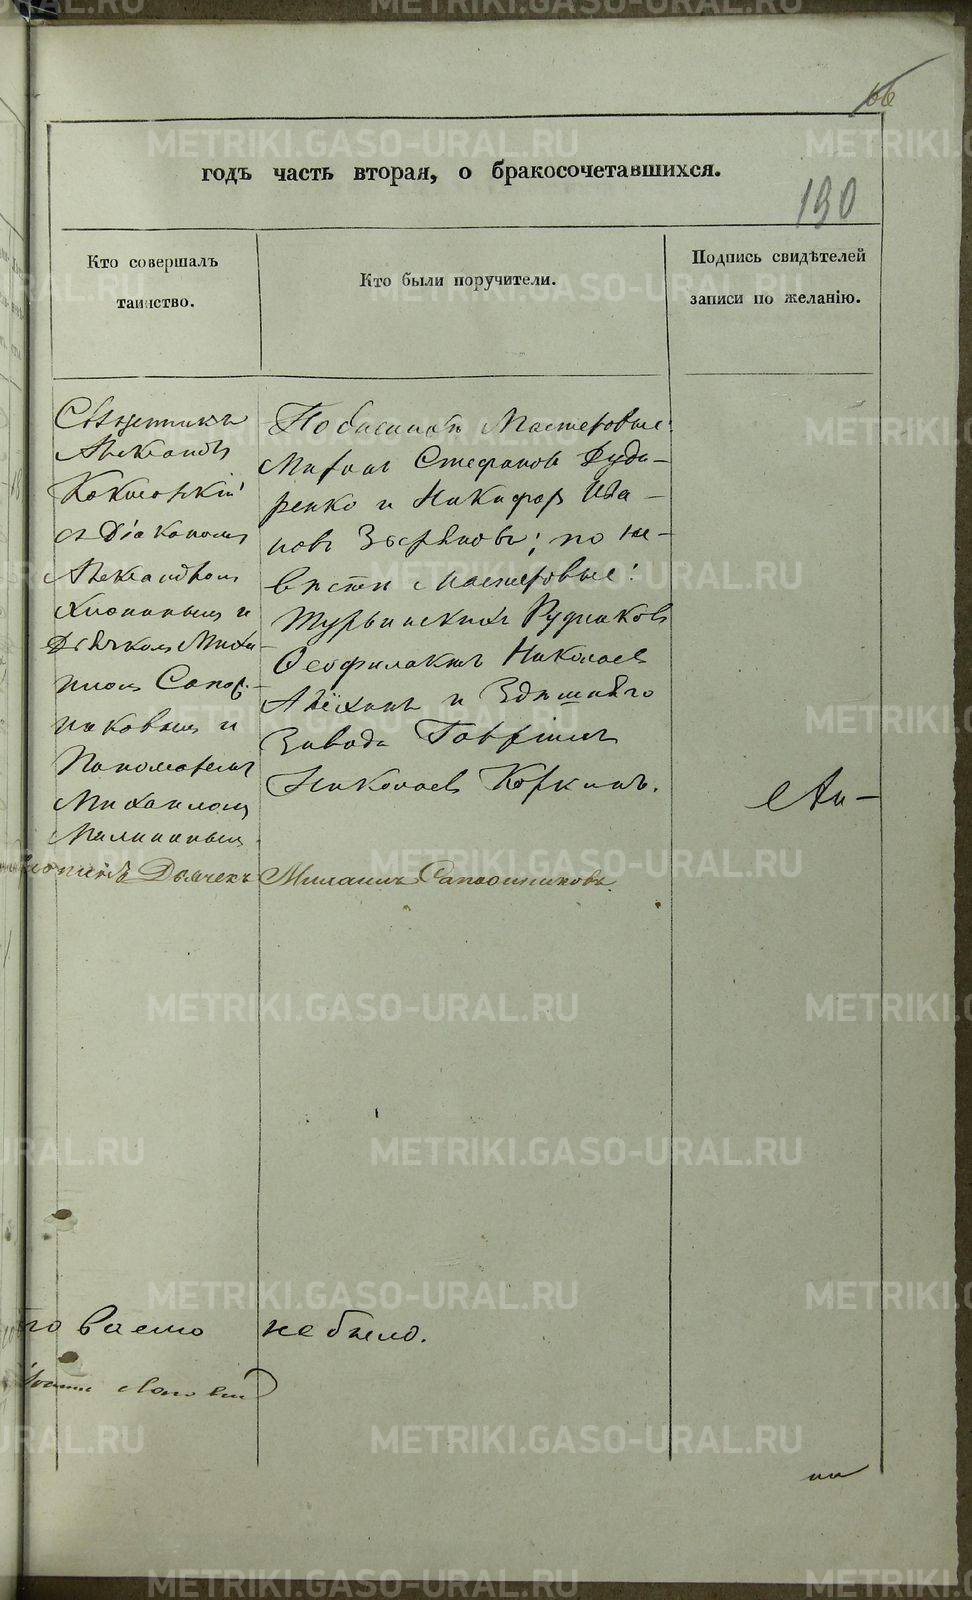 66
годъ часть вторая, о бракосочетавшихся.
190
Кто совершалъ
таинство.
Кто были поручители.
Подпись свидѣтелей
записи по желанію.
Священникъ
Александръ
съ Діакономъ
Александромъ
и
Дьячкомъ Миха-
иломъ Сапож-
никовымъ и
Пономаремъ
Михаиломъ
Малининымъ
Мастеровые:
Миронъ Стефановъ Дуда-
ренко и Никифоръ Ива-
новъ Звѣревъ; по не-
вѣстѣ Мастеровые:
Турьинскихъ Рудниковъ
Ѳеофилактъ Николаевъ
Алёхинъ и Здѣшняго
Завода Гавріилъ
Николаевъ Коркинъ.
Дьячекъ Михаилъ Сапожниковъ.
не было.
METRIKI.GASO-URAL.RU